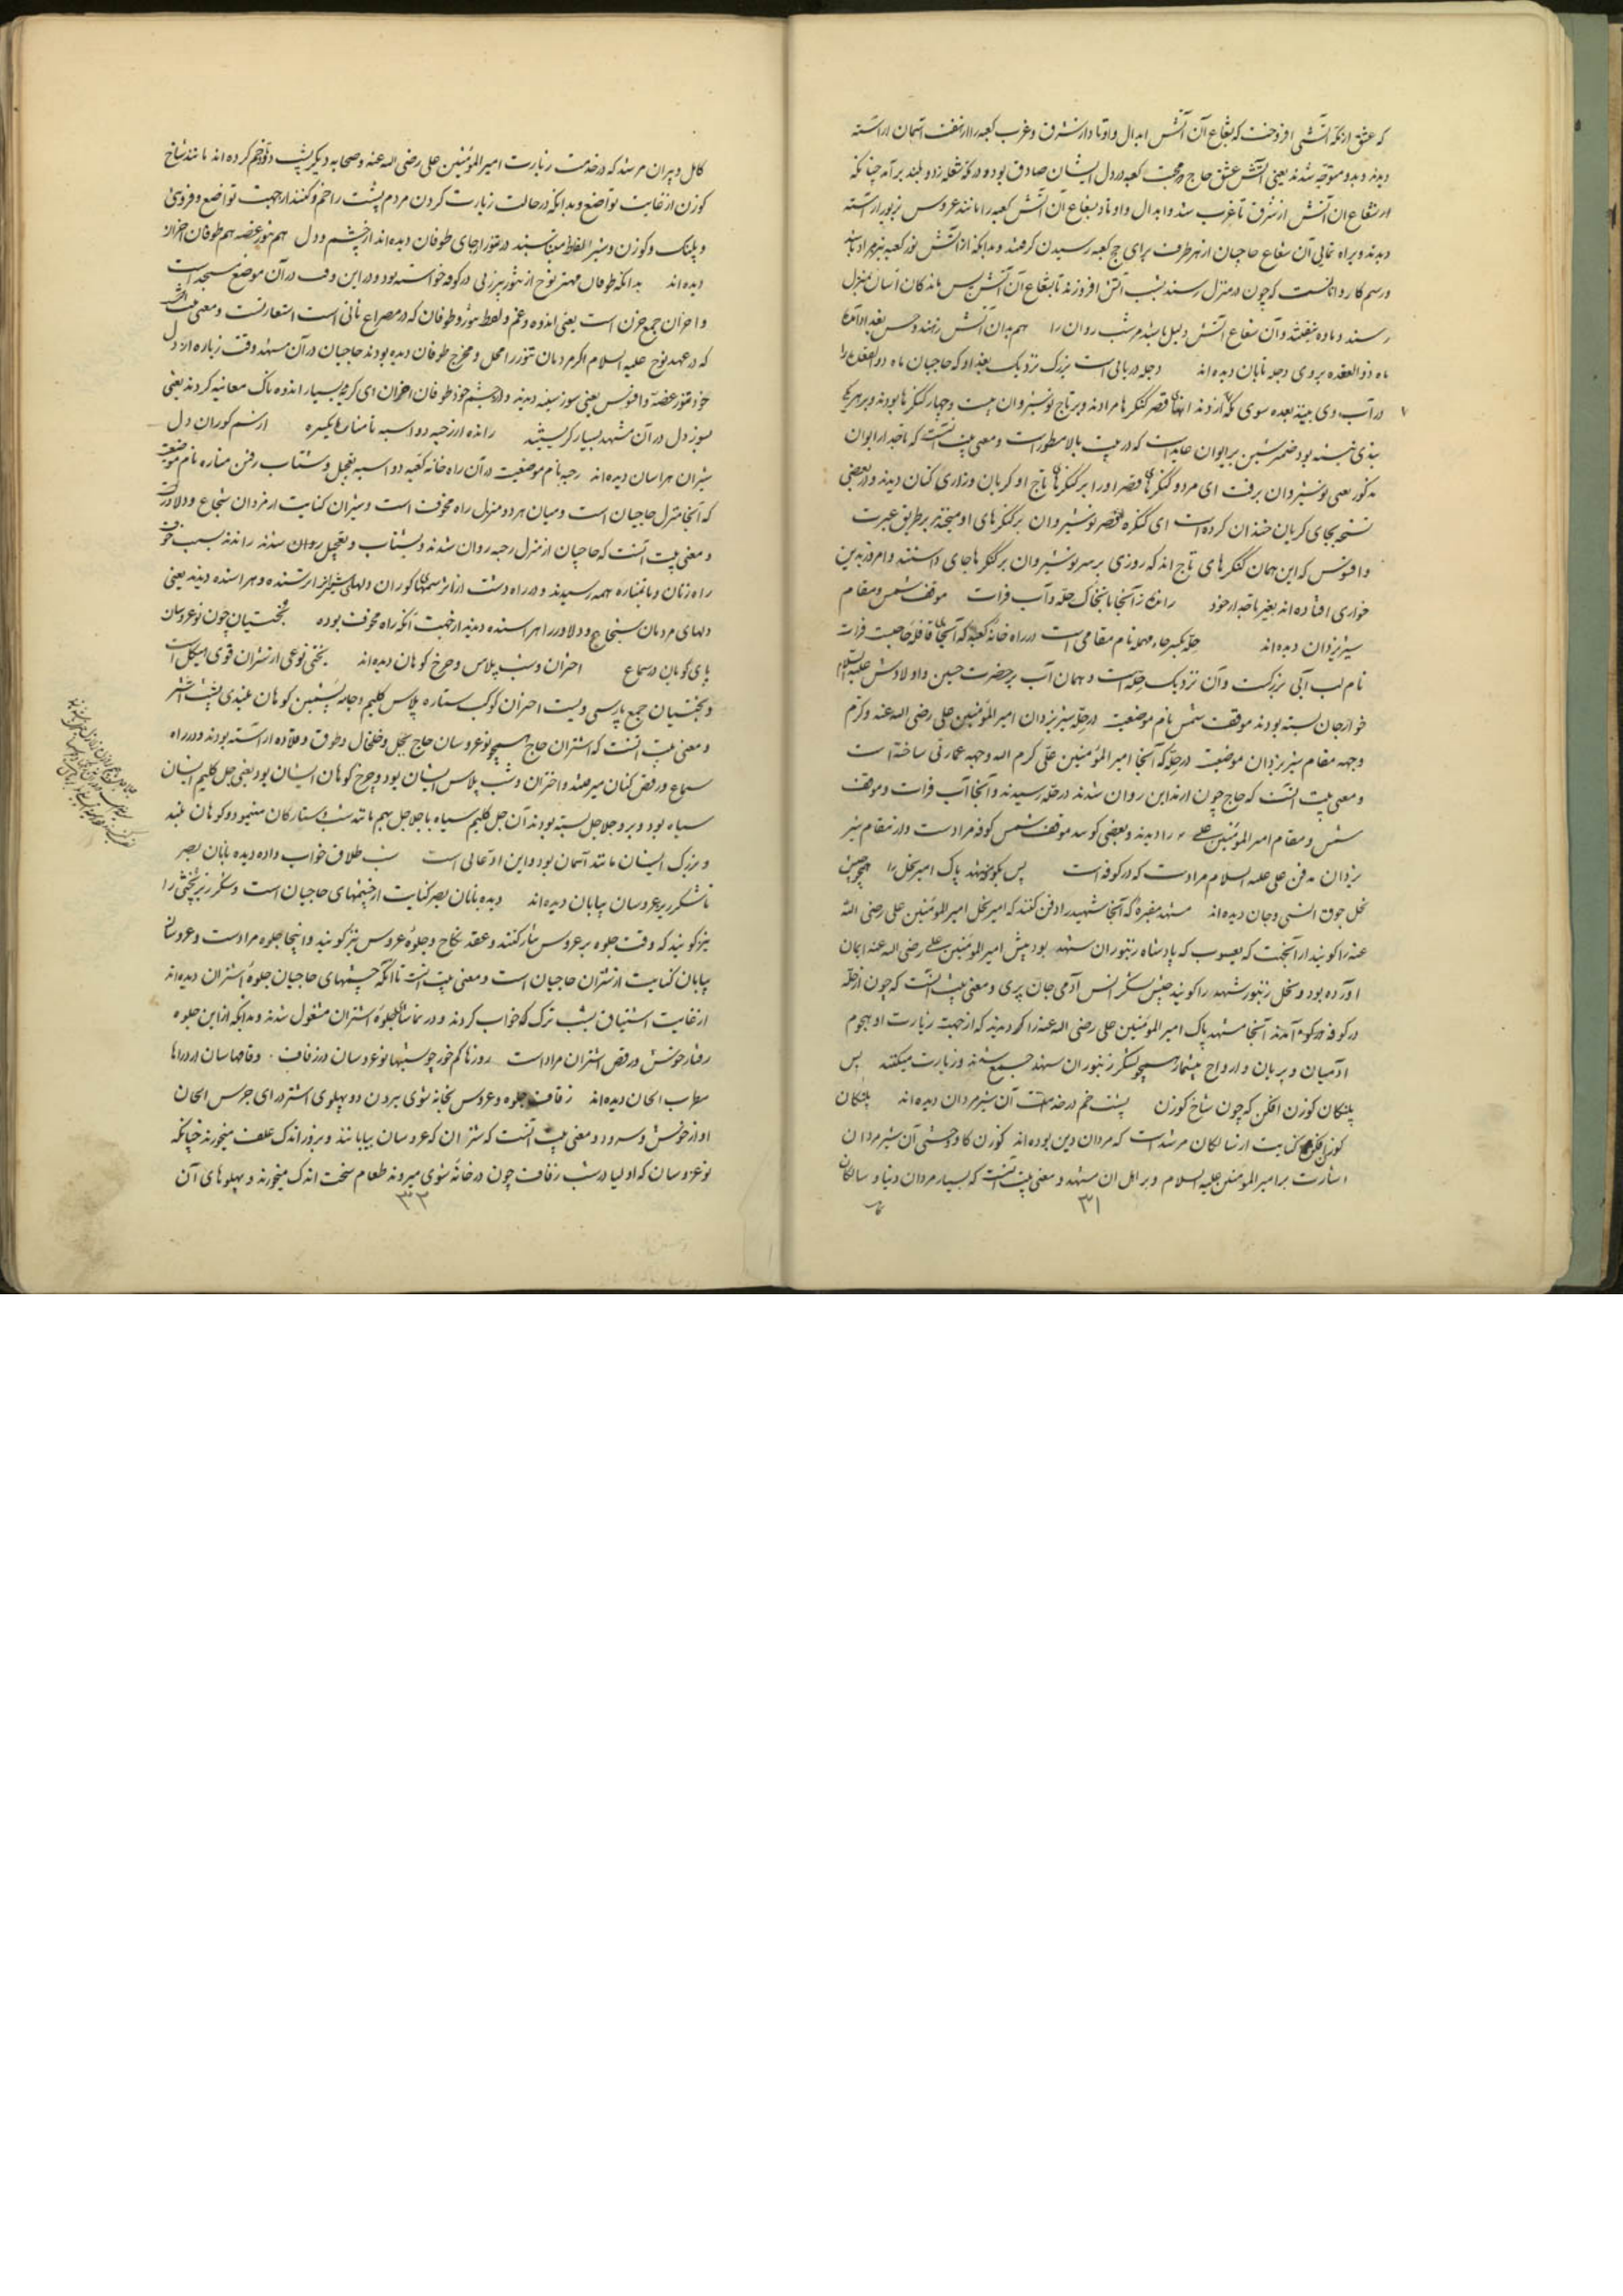 که عشق از مکه آتشی افروخت که بشعاع آن آتش ابدال و اوتاد از شرق و غرب کعبه را
دیدند و بدو متوجّه شدند یعنی آتش عشق حاج در محبت کعبه در دل ایشان صادق بود و در مکه شعله زد و بلند برآمد چنانکه
از شعاع آن آتش از شرق تا غرب شد و ابدال و اوتاد بشعاع آن آتش کعبه را مانند عروس بزیور آراسته
دیدند و براه نمایی آن شعاع حاجیان از هر طرف برای حج کعبه رسیدن گرفتند و بدانکه از آتش نور کعبه نیز مراد باشد
و رسم کاروانانست که چون در منزل رسند بشب آتش افروزند تا بشعاع آن آتش پس ماندگان آسان بمنزل
رسند و آن شعاع آتش دلیل باشد مر شب روان را هم بدان آتش
ماه ذوالقعده بروی دجله تابان دیده اند دجله دریائی است بزرگ نزدیک بغداد که حاجیان ماه ذوالقعده را
در آب وی بینند بعده سوی قصر کنگرها مرادند و بر تاج نوشیروان بیست و چهار کنگرها بودند و بر هر یکی
پندی نبشته بود ضمیر شین بر ایوان عایدست که در بیت بالا مسطور است و معنی بیت آنست که تاجدار ایوان
مذکور یعنی نوشیروان برفت ای مرد و کنگرهای قصر او را بر کنگرهای تاج او گریان و زاری کنان دیدند و در بعضی
نسخه بجای گریان خندان کرده است ای کنگره قصر نوشیروان بر کنگرهای او میخندد بر طریق عبرت
و افسوس که این همان کنگرهای تاج اند که روزی بر سر نوشیروان بر کنگرها جای داشتند و امروز بدین
خواری افتاده اند بغیر تاجدار خود رانده ز آنجا تا بخاک حله و آب فرات موقف شمس و مقام
شیر یزدان دیده اند حله بکسر حاء مهمله نام مقامی است در راه خانه کعبه که آنجا قافله حاجست فرات
نام لب آبی بزرگست و آن نزدیک حله است و همان آب بر حضرت حسین و اولادش علیه السلام
خوارجان بسته بودند موقف شمس نام موضعیست در حله شیر یزدان امیر المؤمنین علی رضی الله عنه و کرم
وجهه مقام شیر یزدان موضعیست در حله که آنجا امیر المؤمنین علی کرم الله وجهه عمارتی ساخته است
و معنی بیت آنست که حاج چون از مداین روان شدند در حله رسیدند و آنجا آب فرات و موقف
شمس و مقام امیر المؤمنین علی را دیدند و بعضی گویند موقف شمس کوفه مرادست و از مقام شیر
یزدان مدفن علی علیه السلام مرادست که در کوفه است پس بکوفه مشهد پاک امیر نحل را همچو جیش
نحل جوق انسی و جان دیده اند مشهد مقبره که آنجا شهید را دفن کنند که امیر نحل امیر المؤمنین علی رضی الله
عنه را گویند از آنجهت که یعسوب که پادشاه زنبوران شهد بود پیش امیر المؤمنین علی رضی الله عنه ایمان
آورده بود و نحل زنبور شهد را گویند جیش لشکر انس آدمی جان پری و معنی بیت آنست که چون از حله
در کوفه آمدند آنجا مشهد پاک امیر المؤمنین علی رضی الله عنه را دیدند که از جهت زیارت او هجوم
آدمیان و پریان و ارواح بیشمار همچو لشکر زنبوران شهد جمع شدند و زیارت میکنند پس
پلنگان گوزن افکن که چون شاخ گوزن پشت خم در خدمت آن شیر مردان دیده اند پلنگان
گوزن افکن کنایت از سالکان مرشدست که مردان دین بوده اند گوزن گاو وحشی آن شیر مردان
اشارت بر امیر المؤمنین علیه السلام و بر اهل آن مشهد و معنی بیت آنست که بسیار مردان دنیا و سالکان
۳۱
کامل و پیران مرشد که در خدمت زیارت امیر المؤمنین علی رضی الله عنه و صحابه دیگر پشت دو تا و خم کرده اند مانند شاخ
گوزن از غایت تواضع و بدانکه در حالت زیارت کردن مردم پشت را خم کنند از جهت تواضع و فروتنی
و پلنگ و گوزن و شیر الفاظ متناسبند در تنور از جای طوفان دیده اند از چشم و دل هم تنور غصه هم طوفان احزان
دیده اند بدانکه طوفان مهتر نوح از تنور پیرزنی در کوفه خواسته بود و در این وقت در آن موضع مسجد است
و احزان جمع حزن است یعنی اندوه و غم و لفظ تنور و طوفان که در مصراع ثانی است استعارتست و معنی بیت آنست
که در عهد نوح علیه السلام اگر مردمان تنور را محل و مخرج طوفان دیده بودند حاجیان در آن مشهد وقت زیارت از دل
خود تنور غصه و افسوس یعنی سوز سینه دیدند و از چشم خود طوفان احزان ای گریه بسیار اندوه ناک معاینه کردند یعنی
بسوز دل در آن مشهد بسیار گریستند رانده از رحبه دو اسپه تا مناره یکسره از سم گوران دل
شیران هراسان دیده اند رحبه نام موضعیست در آن راه خانه کعبه دو اسپه تعجیل و شتاب رفتن مناره نام موضعیست
که آنجا منزل حاجیان است و میان هر دو منزل راه مخوفت است و شیران کنایت از مردان شجاع و دلاورست
و معنی بیت آنست که حاجیان از منزل رحبه روان شدند و بشتاب و تعجیل روان شدند راندند بسبب خوف
راه زنان و تا بمناره همه رسیدند و در راه دشت از سمهای گوران دلهای شیران ترسنده و هراسنده دیدند یعنی
دلهای مردمان شجاع و دلاور را هراسنده دیدند از جهت آنکه راه مخوف بوده بختیان چون نوعروسان
پای کوبان در سماع اختران و شب پلاس و چرخ کوهان دیده اند بختی نوعی از شتران قوی هیکل است
و بختیان جمع پارسی ویست اختران کوکب ستاره پلاس گلیم و جامه پشمین کوهان بلندی پشت اشتر
و معنی بیت آنست که اشتران حاج همچو نوعروسان حاج بجل و خلخال و طوق و قلاده آراسته بودند و در راه
سماع و رقص کنان میرفتند و اختران و شب پلاس ایشان بود و چرخ کوهان ایشان بود یعنی جل گلیم ایشان
سیاه بود و برو جلاجل بسته بودند آن جل گلیم سیاه با جلاجل بهم مانند شب و ستارگان مینمود و کوهان بلند
و بزرگ ایشان مانند آسمان بود و این ادعائی است شب طلاق خواب داده دیده بانان بصر
تا شکر ریز عروسان بیابان دیده اند دیده بانان بصر کنایت از چشمهای حاجیان است و شکر ریز نخشی را
نیز گویند که وقت جلوه بر عروس نثار کنند و عقد نکاح و جلوه عروس نیز گویند و اینجا جلوه مرادست و عروسان
بیابان کنایت از شتران حاجیان است و معنی بیت آنست تا آنکه چشمهای حاجیان جلوه اشتران دیده اند
از غایت اشتیاق بشب ترک خواب کردند و در تماشای جلوه اشتران مشغول شدند و بدانکه از این جلوه
رفتار خوش و رقص اشتران مراد است روزها کم خور چو شبها نوعروسان در زفاف
مطرب الحان دیده اند زفاف جلوه و عروس بخانه شوی بردن دو پهلوی اشتر درای جرس الحان
آواز خوش و سرود و معنی بیت آنست که شتران که عروسان بیابانند و بروز اندک علف میخورند چنانکه
نوعروسان که اولیا در شب زفاف چون در خانه شوی میروند طعام سخت اندک میخورند و پهلوهای آن
۳۲